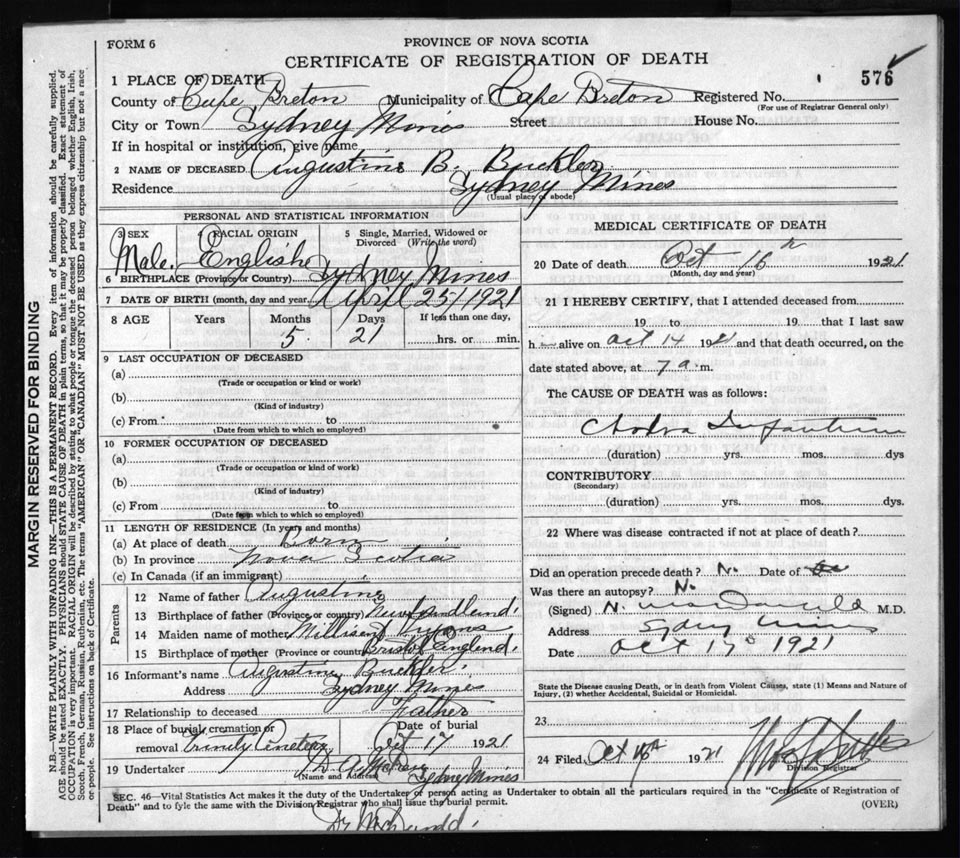 FORM 6
PROVINCE OF NOVA SCOTIA
CERTIFICATE OF REGISTRATION OF DEATH
1 PLACE OF DEATH
576
County of Cape Breton Municipality of Cape Breton Registered No.
(For use of Registrar General only)
City or Town Sydney Mines Street House No.
If in hospital or institution, give name
2 NAME OF DECEASED Augustine B. Buckler
Residence Sydney Mines
(Usual place of abode)
PERSONAL AND STATISTICAL INFORMATION
3 SEX Male
4 RACIAL ORIGIN English
5 Single, Married, Widowed or Divorced (Write the word)
6 BIRTHPLACE (Province or Country) Sydney Mines
7 DATE OF BIRTH (month, day and year April 25/1921
8 AGE Years Months Days If less than one day,
5 21 hrs. or min.
9 LAST OCCUPATION OF DECEASED
(a)
(Trade or occupation or kind or work)
(b)
(Kind of industry)
(c) From to
(Date from which to which so employed)
10 FORMER OCCUPATION OF DECEASED
(a)
(Trade or occupation or kind of work)
(b)
(Kind of industry)
(c) From to
(Date from which to which so employed)
11 LENGTH OF RESIDENCE (In years and months)
(a) At place of death Born
(b) In province Nova Scotia
(c) In Canada (if an immigrant)
Parents
12 Name of father Augustine
13 Birthplace of father (Province or country) Newfoundland.
14 Maiden name of mother Millisent
15 Birthplace of mother (Province or country) Bristol England.
16 Informant's name Augustine Buckler.
Address Sydney Mines
17 Relationship to deceased Father
18 Place of burial, cremation or removal Trinity Cemetery
Date of burial Oct 17 1921
19 Undertaker Sydney Mines
(Name and Address)
MEDICAL CERTIFICATE OF DEATH
20 Date of death Oct - 16 th 1921
(Month, day and year)
21 I HEREBY CERTIFY, that I attended deceased from
19 to 19 that I last saw
h alive on Oct 14 1921 and that death occurred, on the
date stated above, at 7 a. m.
The CAUSE OF DEATH was as follows:
Cholera Infantum
(duration) yrs. mos. dys
CONTRIBUTORY
(Secondary)
(duration) yrs. mos. dys.
22 Where was disease contracted if not at place of death?
Did an operation precede death? No Date of
Was there an autopsy? No
(Signed) M.D.
Address Sydney Mines
Date Oct 17 1921
State the Disease causing Death, or in death from Violent Causes, state (1) Means and Nature of Injury, (2) whether Accidental, Suicidal or Homicidal.
23
24 Filed Oct 1921
Division Registrar
SEC. 46—Vital Statistics Act makes it the duty of the Undertaker or person acting as Undertaker to obtain all the particulars required in the "Certificate of Registration of
Death" and to fyle the same with the Division Registrar who shall issue the burial permit.
(OVER)
MARGIN RESERVED FOR BINDING
N.B.—WRITE PLAINLY WITH UNFADING INK—THIS IS A PERMANENT RECORD. Every item of information should be carefully supplied.
AGE should be stated EXACTLY. PHYSICIANS should STATE CAUSE OF DEATH in plain terms, so that it may be properly classified. Exact statement of
OCCUPATION is very important. RACIAL ORIGIN will be described by stating to what people or tongue the deceased person belonged, whether English, Irish,
Scotch, French, German, Russian, Ruthenian, etc. The terms "AMERICAN" OR "CANADIAN" MUST NOT BE USED as they express citizenship but not a race
or people. See instructions on back of Certificate.